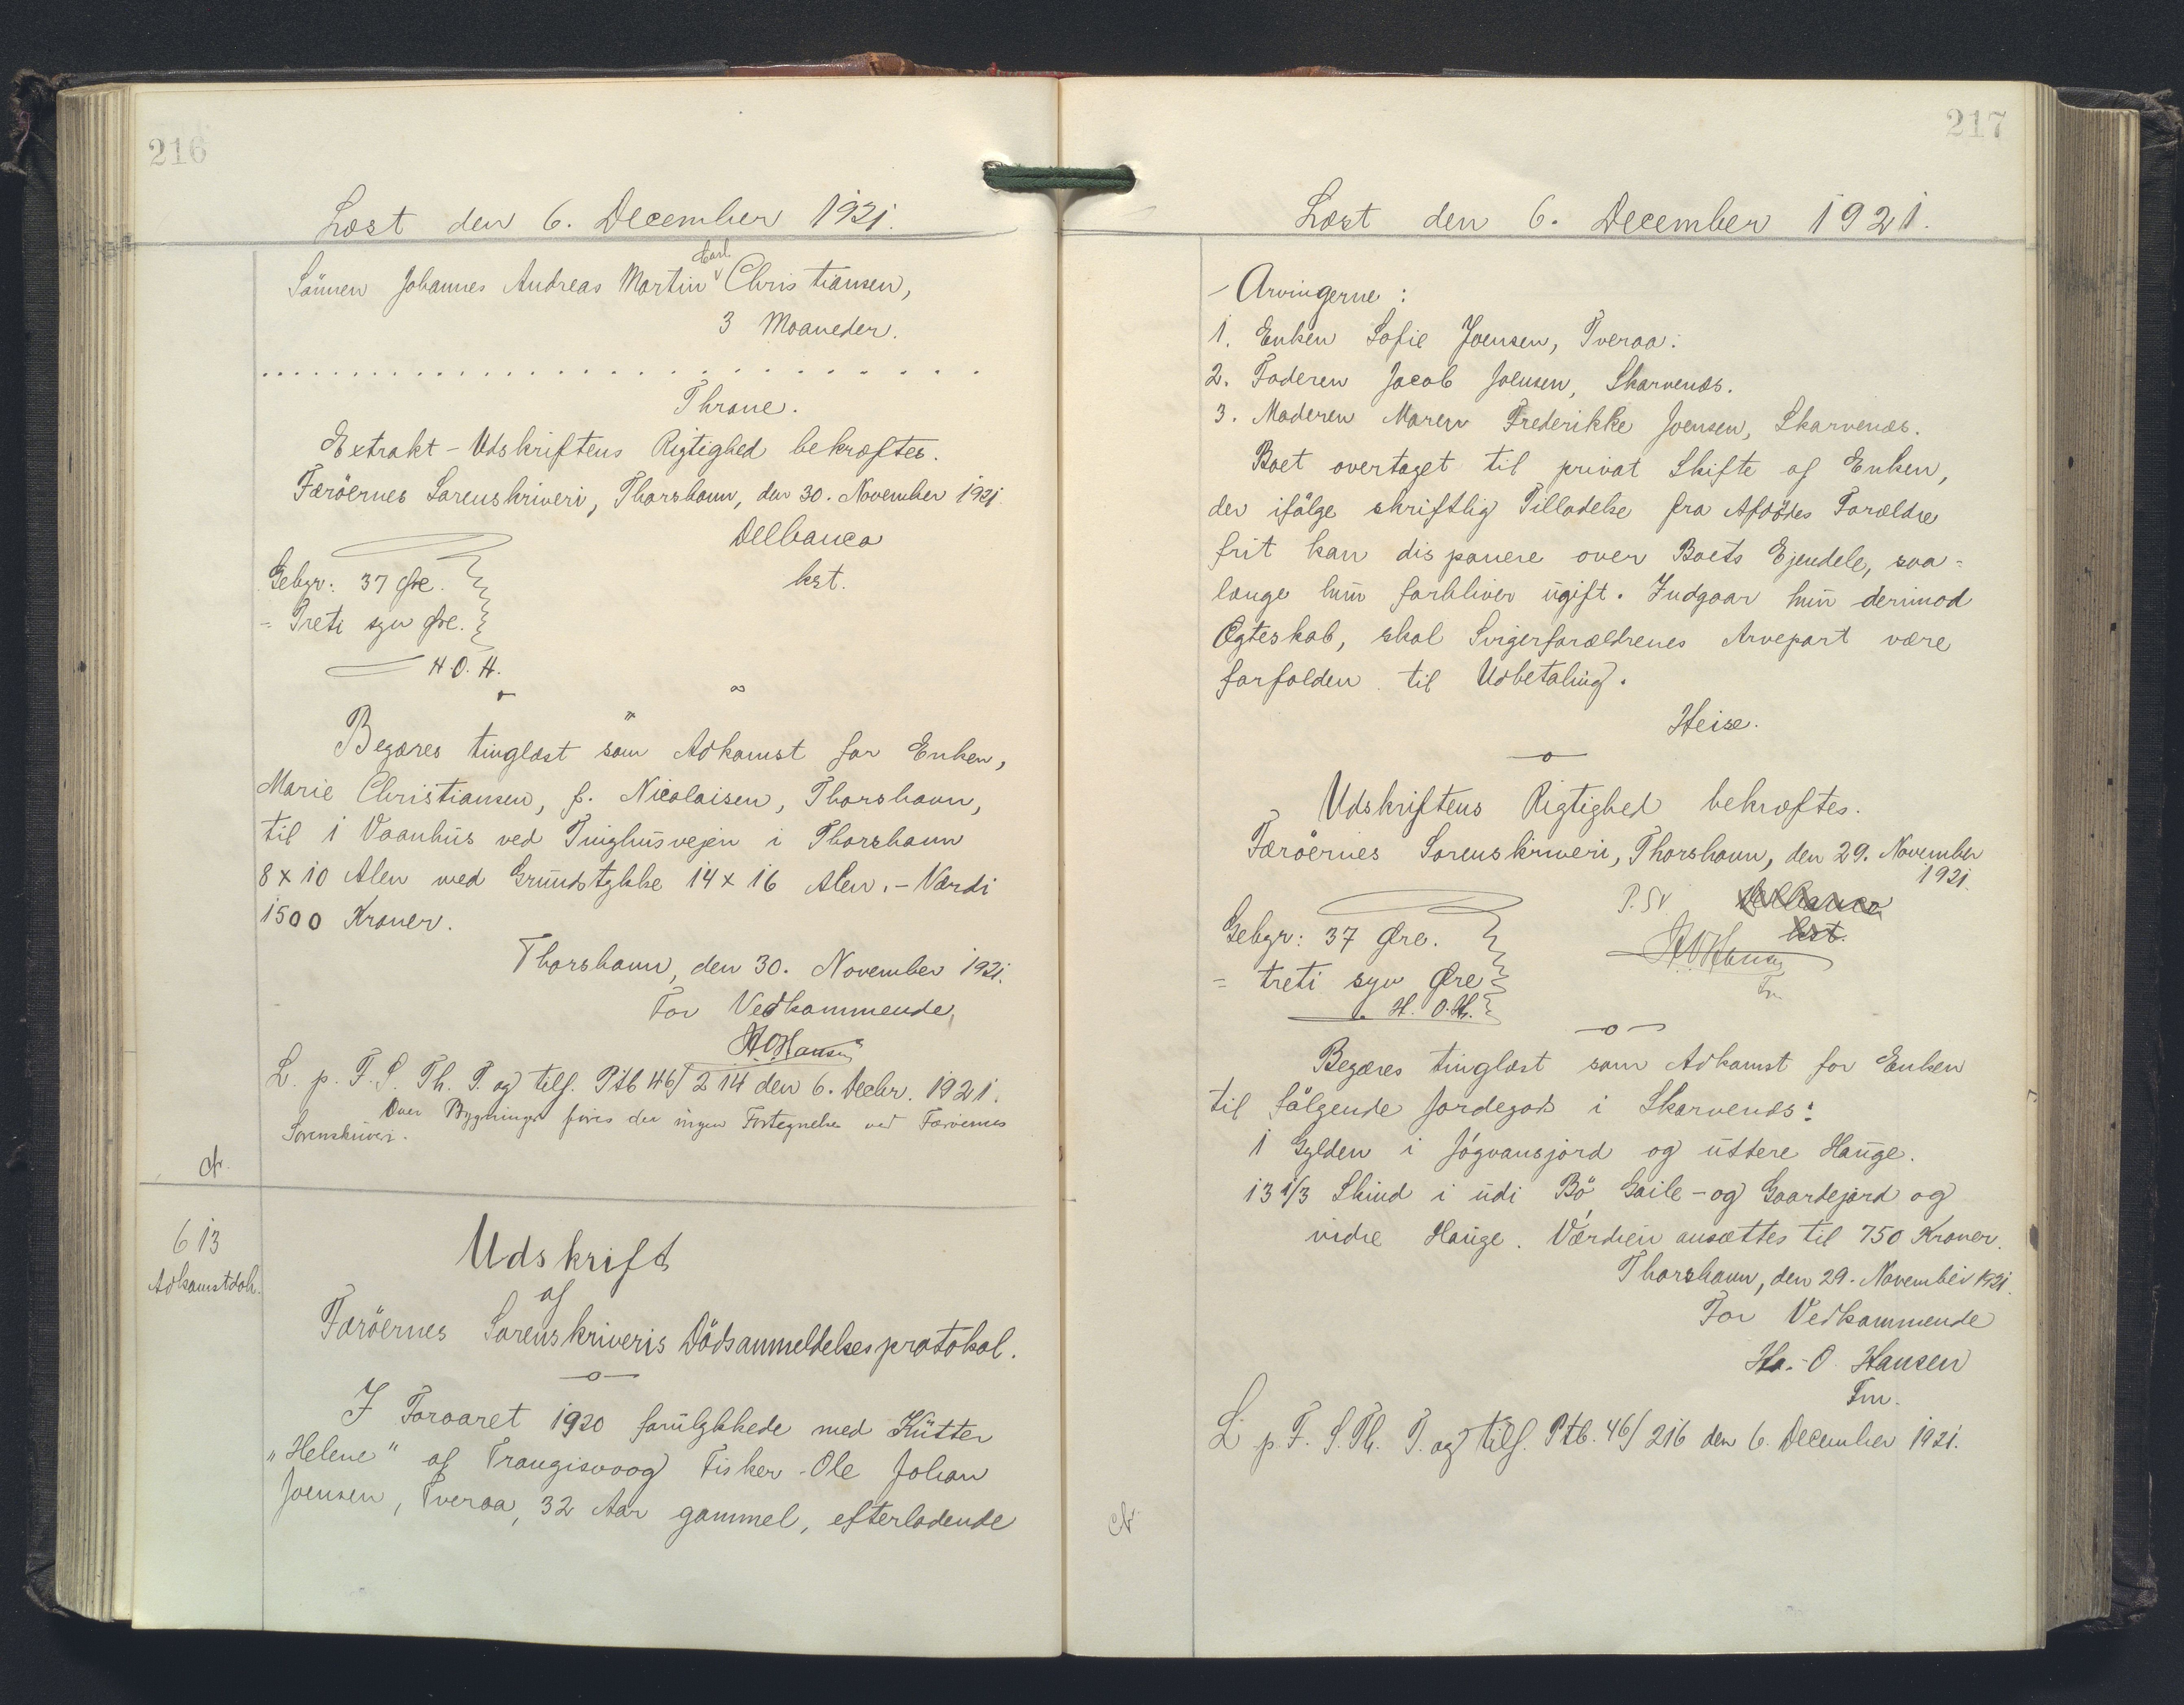 216
Læst den 6. December 1921.
Sönnen Johannes Andreas Martin Carl Christiansen,
3 Moaneder.
. . . . . . . . . . . . . . . . . . . . . . . . . . . . .
Throne.
Extrakt-Udskriftens Rigtighed bekræftes.
Færöernes Sorenskriveri, Thorshavn, den 30. November 1921.
Dellbanco
kst.
Gebyr: 37 Øre.
= Treti syv Øre.
H. O. H.
Begæres tinglæst som Adkomst for Enken,
Marie Christiansen, f. Nicolaisen, Thorshavn,
til 1 Vaanhus ved Tinghusvejen i Thorshavn
8 x 10 Alen med Grundstykke 14 x 16 Alen. - Værdi
1500 Kroner.
Thorshavn, den 30. November 1921.
For Vedkommende,
H. O. Hansen
L. p. F. S. Th. T. og tilf. Ptb 46/214 den 6. Decbr. 1921.
Over Bygninger føres der ingen Fortegnelse ved Færøernes
Sorenskriveri.
613
Adkomstdok.
Udskrift
af
Færöernes Sorenskriveris Dödsanmeldelsesprotokol.
I Foraaret 1920 forulykkede med Kutter
"Helene" af Trangisvaag Fisker Ole Johan
Joensen, Tveraa, 32 Aar gammel, efterladende
217
Læst den 6. December 1921.
Arvingerne:
1. Enken Sofie Joensen, Tveraa.
2. Faderen Jacob Joensen, Skarvenæs.
3. Moderen Maren Frederikke Joensen, Skarvenæs.
Boet overtaget til privat Skifte af Enken,
der ifölge skriftlig Tilladelse fra Afdödes Forældre
frit kan disponere over Boets Ejendele, saa=
længe hun forbliver ugift. Indgaar hun derimod
Ægteskab, skal Svigerforældrenes Arvepart være
forfalden til Udbetaling.
Heise.
Udskriftens Rigtighed bekræftes.
Færöernes Sorenskriveri, Thorshavn, den 29. November
1921.
P. SV. Dellbanco
kst.
Gebyr: 37 Øre.
H. O. Hansen
= treti syv Øre
Fm.
H. O. H.
Begæres tinglæst som Adkomst for Enken
til fölgende Jordegods i Skarvenæs:
1 Gylden i Jógvansjord og uttere Hauge.
13 1/3 Skind i udi Bö, Gaile- og Gaardejord og
indre Hauge. Værdien ansættes til 750 Kroner.
Thorshavn, den 29. November 1921.
For Vedkommende
Ha. O. Hansen
Fm.
L. p. F. S. Th. T. og tilf. Ptb. 46/216 den 6. December 1921.